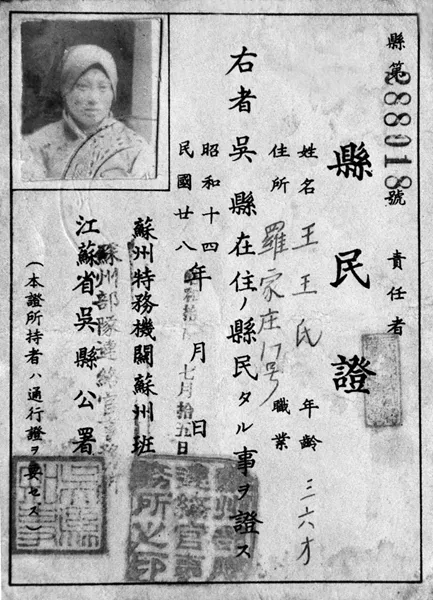 縣第288018號
責任者
縣民證
姓名 王王氏 年齡 三六才
住所 羅家庄17号 職業
右者吳縣在住ノ縣民タル事ヲ證ス
昭和十四
民國廿八年 月 日
七月拾五日
蘇州特務機關蘇州班
蘇州部隊連絡官事務所
江蘇省吳縣公署
(本證所持者ハ通行證ヲ要セス)